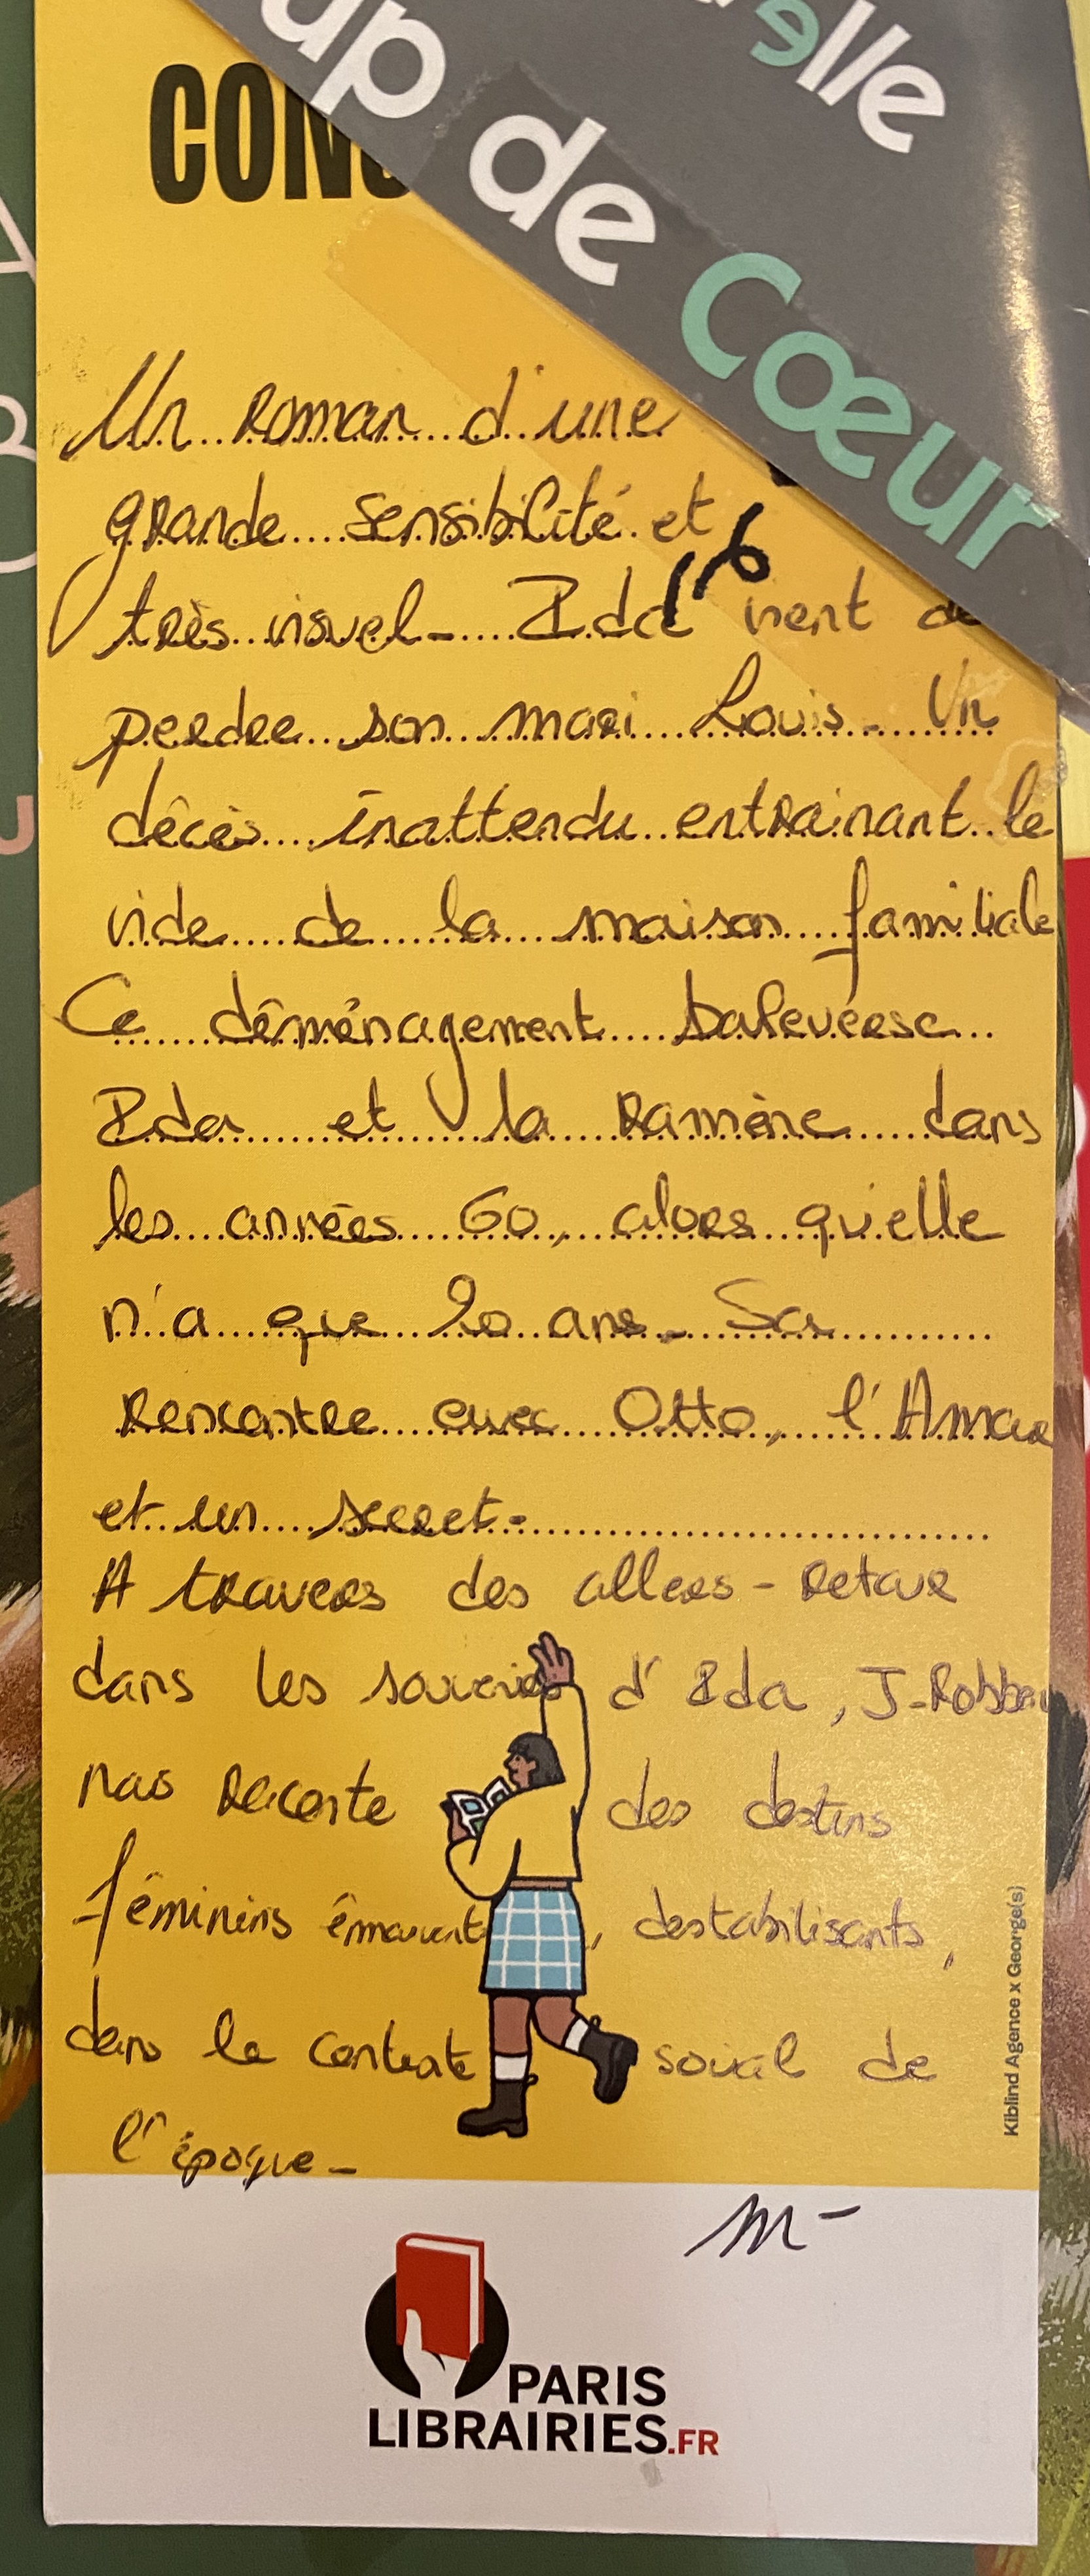 elle
up de Cœur
CON
Un roman d'une
grande sensibilité et
très visuel_ Ida vient de
perdre son mari Louis_ Un
décès inattendu entrainant le
vide de la maison familiale
Ce déménagement bouleverse
Ida et la ramène dans
les années 60, alors qu'elle
n'a que 20 ans_ Sa
rencontre avec Otto, l'Amour
et un secret-
A travers des allers-retour
dans les souvenirs d'Ida, J-Robba
nous raconte des destins
féminins émouvants, destabilisants,
dans le contexte social de
l'époque_
M-
Kiblind Agence x George(s)
PARIS
LIBRAIRIES.FR